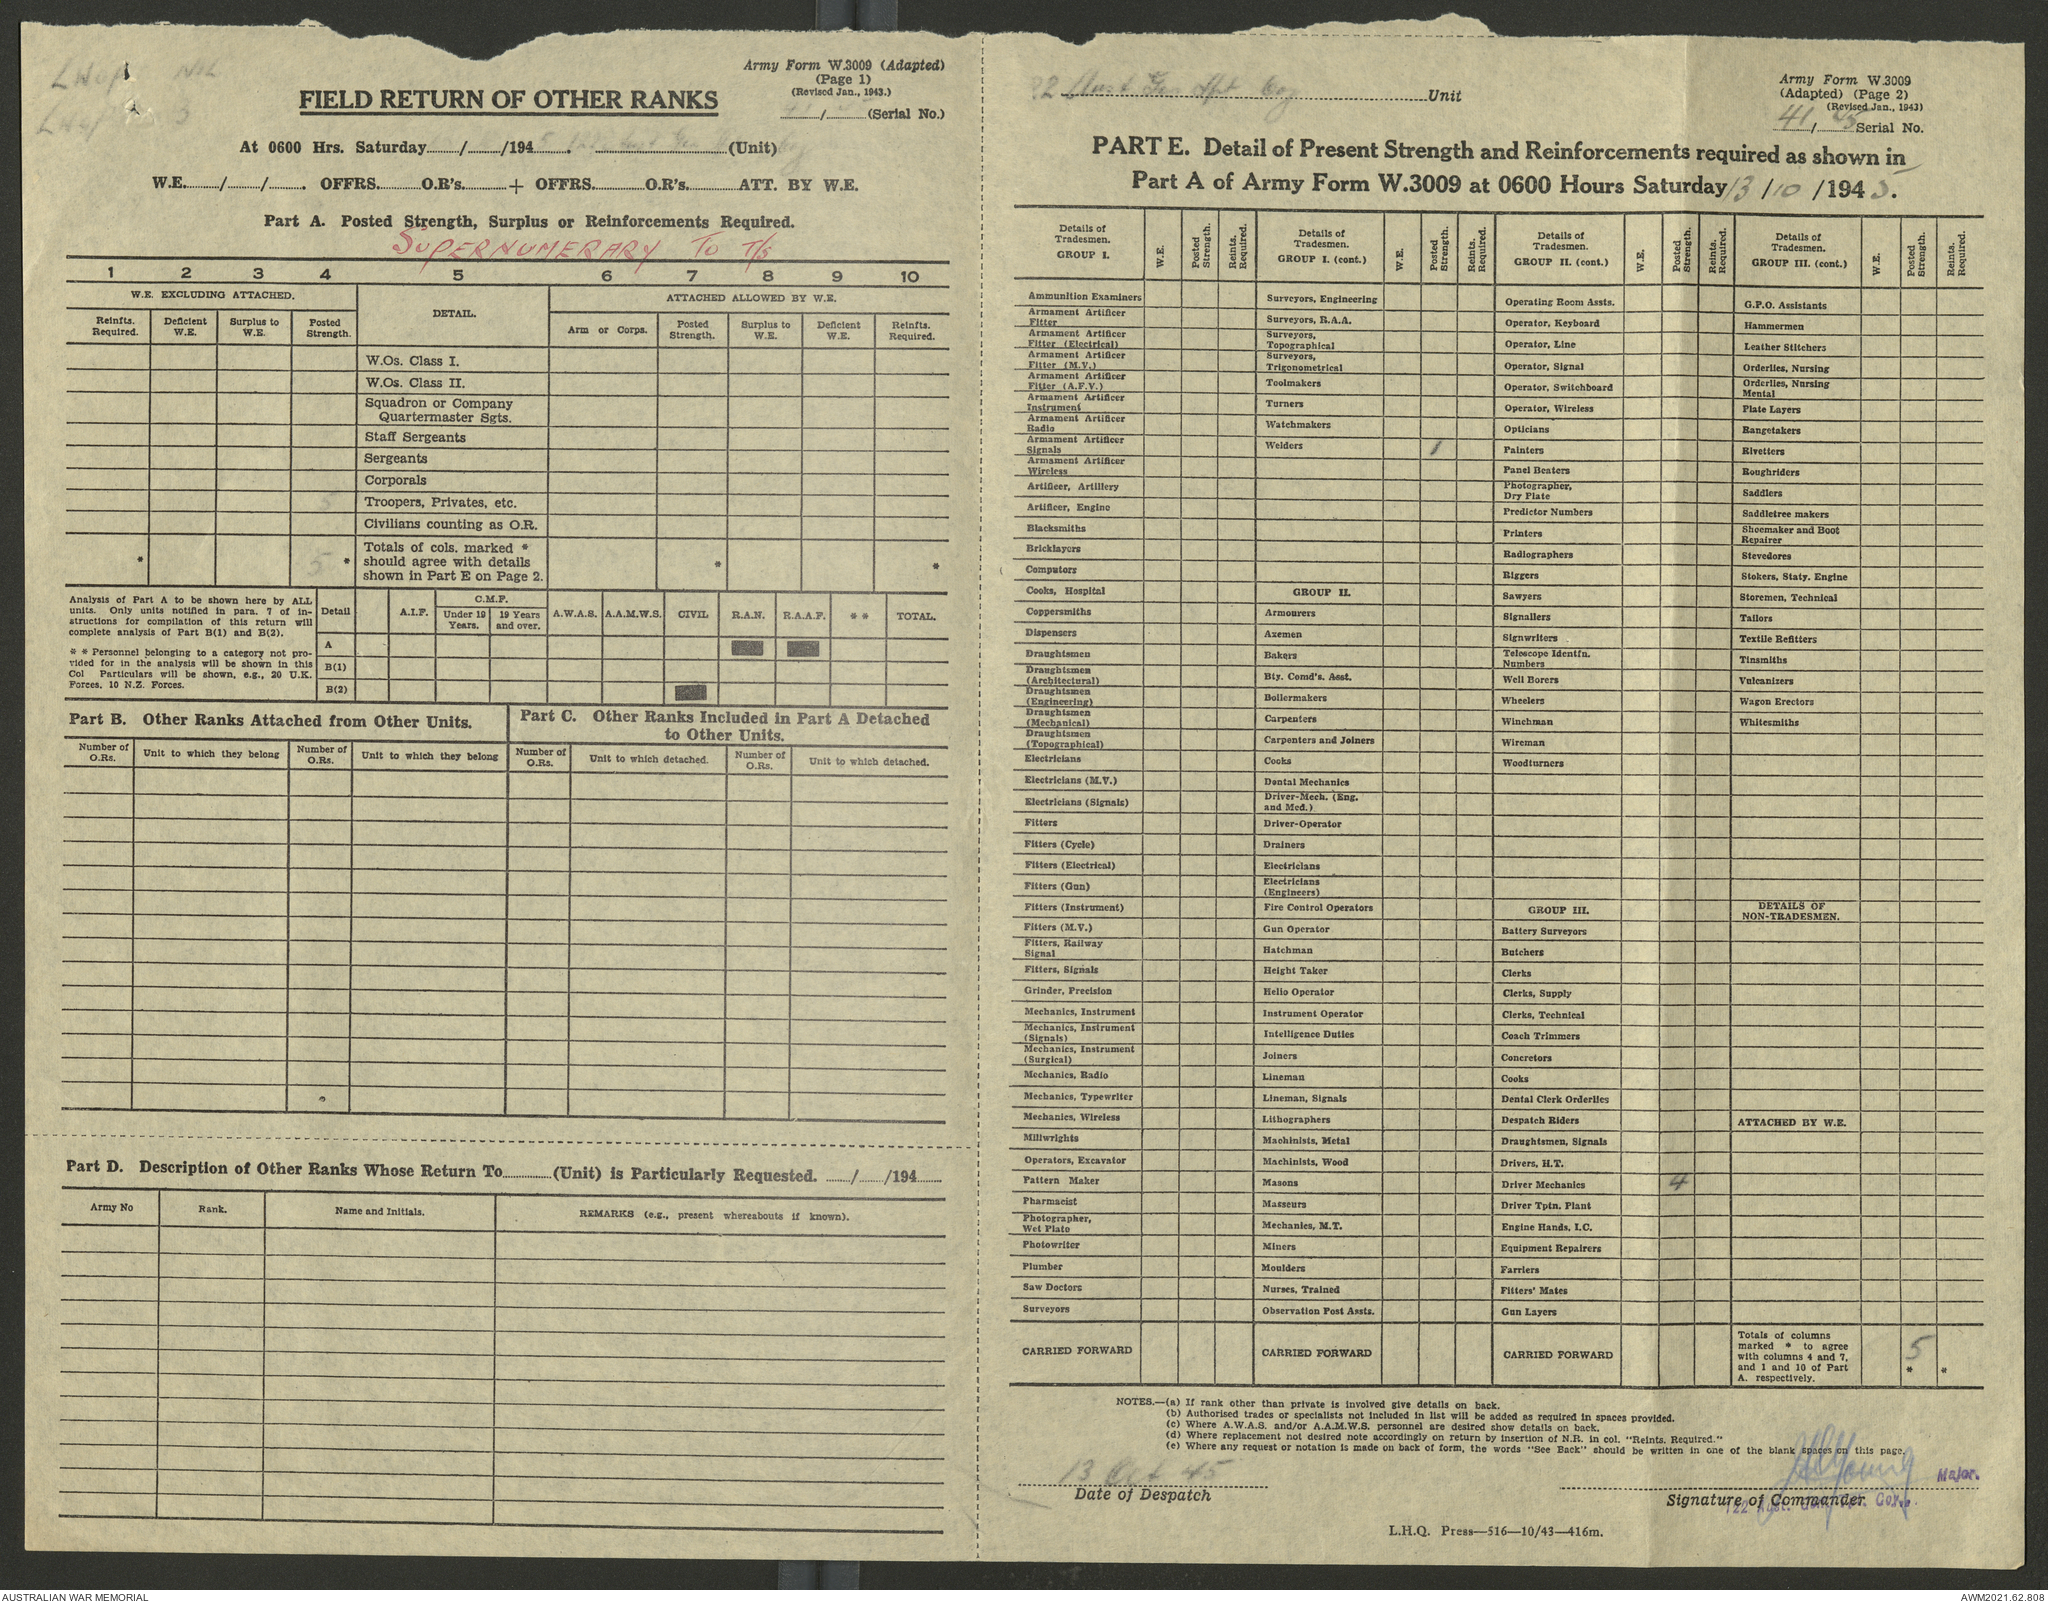 Army Form W.3009 (Adapted)
(Page 1)
(Revised Jan., 1943.)
FIELD RETURN OF OTHER RANKS
/ (Serial No.)
At 0600 Hrs. Saturday / /1945. (Unit)
W.E. / / . OFFRS. O.R's. + OFFRS. O.R's. ATT. BY W.E.
Part A. Posted Strength, Surplus or Reinforcements Required.
SUPERNUMERARY TO T/S
1 2 3 4 5 6 7 8 9 10
W.E. EXCLUDING ATTACHED.
DETAIL.
ATTACHED ALLOWED BY W.E.
Reinfts. Required.
Deficient W.E.
Surplus to W.E.
Posted Strength.
Arm or Corps.
Posted Strength.
Surplus to W.E.
Deficient W.E.
Reinfts. Required.
W.Os. Class I.
W.Os. Class II.
Squadron or Company
Quartermaster Sgts.
Staff Sergeants
Sergeants
Corporals
5 Troopers, Privates, etc.
Civilians counting as O.R.
Totals of cols. marked *
should agree with details
shown in Part E on Page 2.
* 5 * * *
Analysis of Part A to be shown here by ALL
units. Only units notified in para. 7 of in-
structions for compilation of this return will
complete analysis of Part B(1) and B(2).
* * Personnel belonging to a category not pro-
vided for in the analysis will be shown in this
Col Particulars will be shown, e.g., 20 U.K.
Forces, 10 N.Z. Forces.
Detail
A.I.F.
C.M.F.
Under 19 Years.
19 Years and over.
A.W.A.S.
A.A.M.W.S.
CIVIL
R.A.N.
R.A.A.F.
* *
TOTAL.
A
B(1)
B(2)
Part B. Other Ranks Attached from Other Units.
Part C. Other Ranks Included in Part A Detached
to Other Units.
Number of O.Rs.
Unit to which they belong
Number of O.Rs.
Unit to which they belong
Number of O.Rs.
Unit to which detached.
Number of O.Rs.
Unit to which detached.
Part D. Description of Other Ranks Whose Return To (Unit) is Particularly Requested. / /194
Army No
Rank.
Name and Initials.
REMARKS (e.g., present whereabouts if known).
22 Aust Gen Hpt Coy Unit
Army Form W.3009
(Adapted) (Page 2)
(Revised Jan., 1943)
41 / 45 Serial No.
PART E. Detail of Present Strength and Reinforcements required as shown in
Part A of Army Form W.3009 at 0600 Hours Saturday 13 /10 /1945.
Details of Tradesmen. GROUP I.
W.E.
Posted Strength.
Reints. Required.
Details of Tradesmen. GROUP I. (cont.)
W.E.
Posted Strength.
Reints. Required.
Details of Tradesmen. GROUP II. (cont.)
W.E.
Posted Strength.
Reints. Required.
Details of Tradesmen. GROUP III. (cont.)
W.E.
Posted Strength.
Reints. Required.
Ammunition Examiners
Armament Artificer Fitter
Armament Artificer Fitter (Electrical)
Armament Artificer Fitter (M.V.)
Armament Artificer Fitter (A.F.V.)
Armament Artificer Instrument
Armament Artificer Radio
Armament Artificer Signals
Armament Artificer Wireless
Artificer, Artillery
Artificer, Engine
Blacksmiths
Bricklayers
Computors
Cooks, Hospital
Coppersmiths
Dispensers
Draughtsmen
Draughtsmen (Architectural)
Draughtsmen (Engineering)
Draughtsmen (Mechanical)
Draughtsmen (Topographical)
Electricians
Electricians (M.V.)
Electricians (Signals)
Fitters
Fitters (Cycle)
Fitters (Electrical)
Fitters (Gun)
Fitters (Instrument)
Fitters (M.V.)
Fitters, Railway Signal
Fitters, Signals
Grinder, Precision
Mechanics, Instrument
Mechanics, Instrument (Signals)
Mechanics, Instrument (Surgical)
Mechanics, Radio
Mechanics, Typewriter
Mechanics, Wireless
Millwrights
Operators, Excavator
Pattern Maker
Pharmacist
Photographer, Wet Plate
Photowriter
Plumber
Saw Doctors
Surveyors
CARRIED FORWARD
Surveyors, Engineering
Surveyors, R.A.A.
Surveyors, Topographical
Surveyors, Trigonometrical
Toolmakers
Turners
Watchmakers
Welders 1
GROUP II.
Armourers
Axemen
Bakers
Bty. Comd's. Asst.
Boilermakers
Carpenters
Carpenters and Joiners
Cooks
Dental Mechanics
Driver-Mech. (Eng. and Med.)
Driver-Operator
Drainers
Electricians
Electricians (Engineers)
Fire Control Operators
Gun Operator
Hatchman
Height Taker
Helio Operator
Instrument Operator
Intelligence Duties
Joiners
Lineman
Lineman, Signals
Lithographers
Machinists, Metal
Machinists, Wood
Masons
Masseurs
Mechanics, M.T.
Miners
Moulders
Nurses, Trained
Observation Post Assts.
CARRIED FORWARD
Operating Room Assts.
Operator, Keyboard
Operator, Line
Operator, Signal
Operator, Switchboard
Operator, Wireless
Opticians
Painters
Panel Beaters
Photographer, Dry Plate
Predictor Numbers
Printers
Radiographers
Riggers
Sawyers
Signallers
Signwriters
Telescope Identfn. Numbers
Well Borers
Wheelers
Winchman
Wireman
Woodturners
GROUP III.
Battery Surveyors
Butchers
Clerks
Clerks, Supply
Clerks, Technical
Coach Trimmers
Concretors
Cooks
Dental Clerk Orderlies
Despatch Riders
Draughtsmen, Signals
Drivers, H.T.
Driver Mechanics 4
Driver Tptn. Plant
Engine Hands, I.C.
Equipment Repairers
Farriers
Fitters' Mates
Gun Layers
CARRIED FORWARD
G.P.O. Assistants
Hammermen
Leather Stitchers
Orderlies, Nursing
Orderlies, Nursing Mental
Plate Layers
Rangetakers
Rivetters
Roughriders
Saddlers
Saddletree makers
Shoemaker and Boot Repairer
Stevedores
Stokers, Staty. Engine
Storemen, Technical
Tailors
Textile Refitters
Tinsmiths
Vulcanizers
Wagon Erectors
Whitesmiths
DETAILS OF NON-TRADESMEN.
ATTACHED BY W.E.
Totals of columns
marked * to agree
with columns 4 and 7,
and 1 and 10 of Part
A. respectively.
5 * *
NOTES.—(a) If rank other than private is involved give details on back.
(b) Authorised trades or specialists not included in list will be added as required in spaces provided.
(c) Where A.W.A.S. and/or A.A.M.W.S. personnel are desired show details on back.
(d) Where replacement not desired note accordingly on return by insertion of N.R. in col. "Reints. Required."
(e) Where any request or notation is made on back of form, the words "See Back" should be written in one of the blank spaces on this page.
13 Oct 45
Date of Despatch
Young Major.
Signature of Commander
L.H.Q. Press—516—10/43—416m.
AUSTRALIAN WAR MEMORIAL
AWM2021.62.808